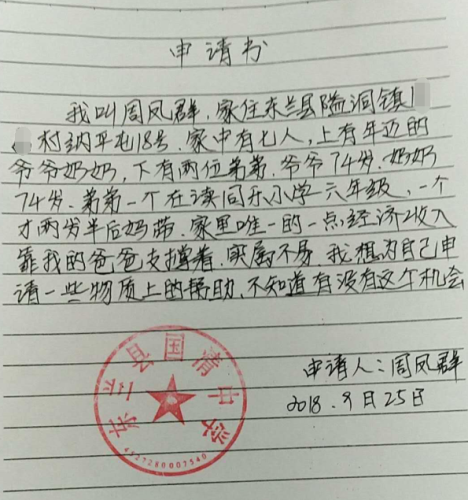 申请书
我叫周凤群，家住东兰县隘洞镇
村纳平屯18号，家中有七人，上有年迈的
爷爷奶奶，下有两位弟弟，爷爷74岁，奶奶
74岁，弟弟一个在读同乐小学六年级，一个
才两岁半后妈带，家里唯一的一点经济收入
靠我的爸爸支撑着，实属不易，我想为自己申
请一些物质上的帮助，不知道有没有这个机会
申请人：周凤群
2018.9月25日
东兰县国清中学
4527280007540